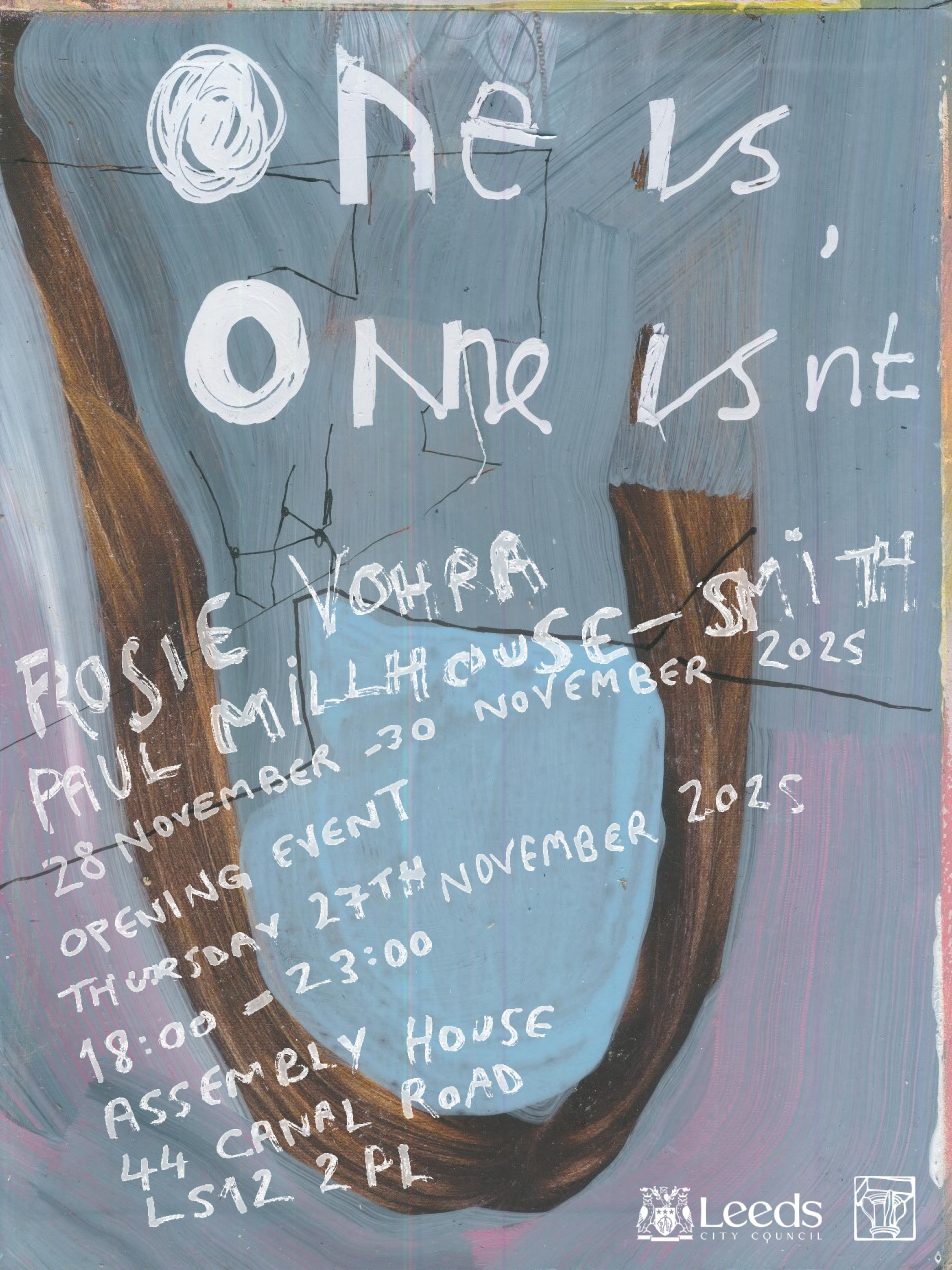 One is,
One isnt
ROSIE VOHRA
PAUL MILLHOUSE-SMITH
28 NOVEMBER -30 NOVEMBER 2025
OPENING EVENT
THURSDAY 27TH NOVEMBER 2025
18:00 - 23:00
ASSEMBLY HOUSE
44 CANAL ROAD
LS12 2PL
Leeds
CITY COUNCIL